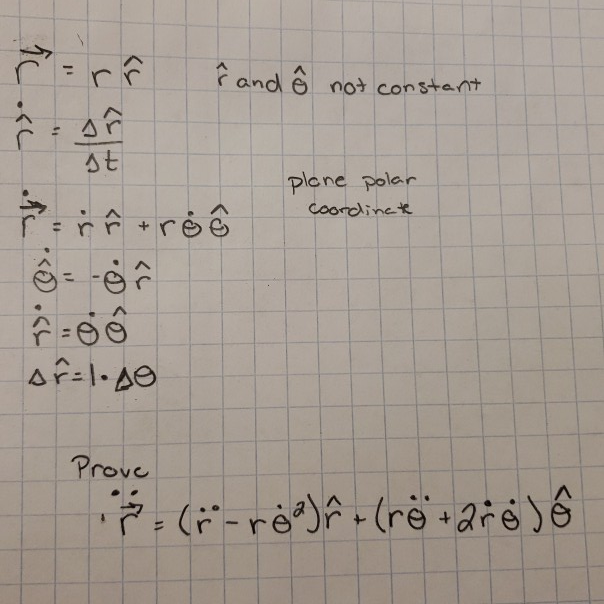 r⃗ = r r̂    r̂ and θ̂ not constant
r̂̇ = Δr̂ / Δt
plane polar
coordinate
r⃗̇ = ṙ r̂ + r θ̇ θ̂
θ̂̇ = -θ̇ r̂
r̂̇ = θ̇ θ̂
Δr̂ = 1 · Δθ
Prove
r⃗̈ = (r̈ - r θ̇²) r̂ + (r θ̈ + 2 ṙ θ̇) θ̂